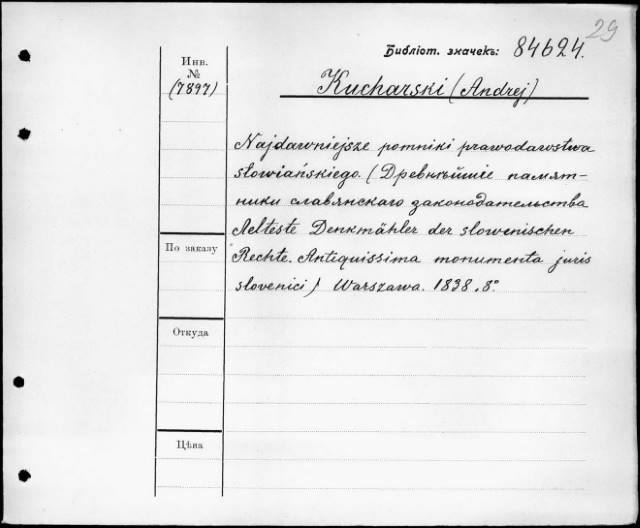 29
Библіот. значекъ: 84624.
Инв.
№
(7897)
Kucharski (Andrej)
Najdawniejsze pomniki prawodawstwa
słowiańskiego. (Древнѣйшіе памят-
ники славянскаго законодательства
Aelteste Denkmähler der slowenischen
Rechte. Antiquissima monumenta juris
slovenici) Warszawa. 1838. 8°
По заказу
Откуда
Цѣна